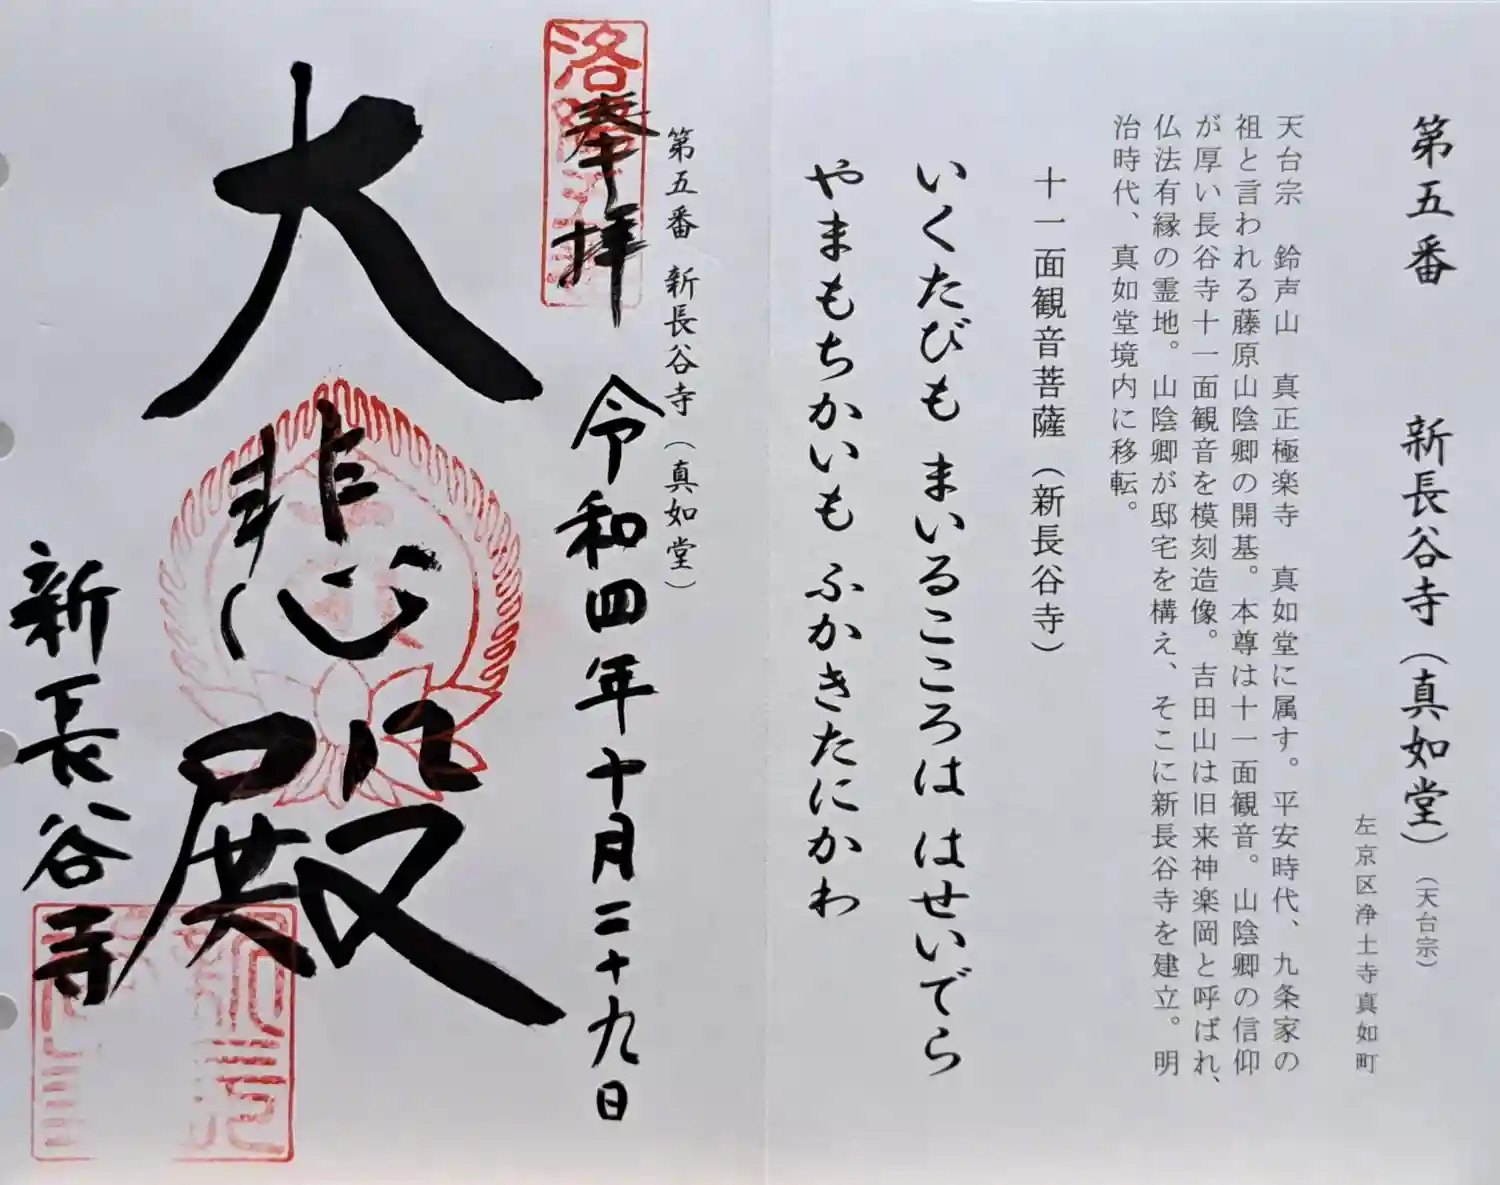 第五番　新長谷寺（真如堂）（天台宗）
左京区浄土寺真如町
天台宗　鈴声山　真正極楽寺　真如堂に属す。平安時代、九条家の
祖と言われる藤原山陰卿の開基。本尊は十一面観音。山陰卿の信仰
が厚い長谷寺十一面観音を模刻造像。吉田山は旧来神楽岡と呼ばれ、
仏法有縁の霊地。山陰卿が邸宅を構え、そこに新長谷寺を建立。明
治時代、真如堂境内に移転。
十一面観音菩薩（新長谷寺）
いくたびも まいるこころは はせいでら
やまもちかいも ふかきたにかわ
第五番 新長谷寺（真如堂）
奉拝
令和四年十月二十九日
大悲殿
新長谷寺